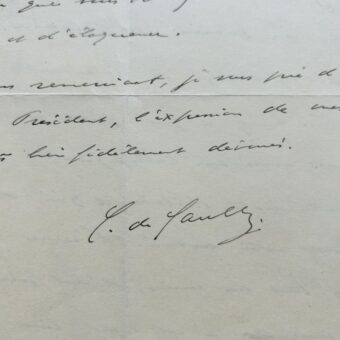 que
et d'éloquence.
remerciant, je vous prie d
Président, l'expression de mes
bien fidèlement dévoués.
C. de Gaulle.